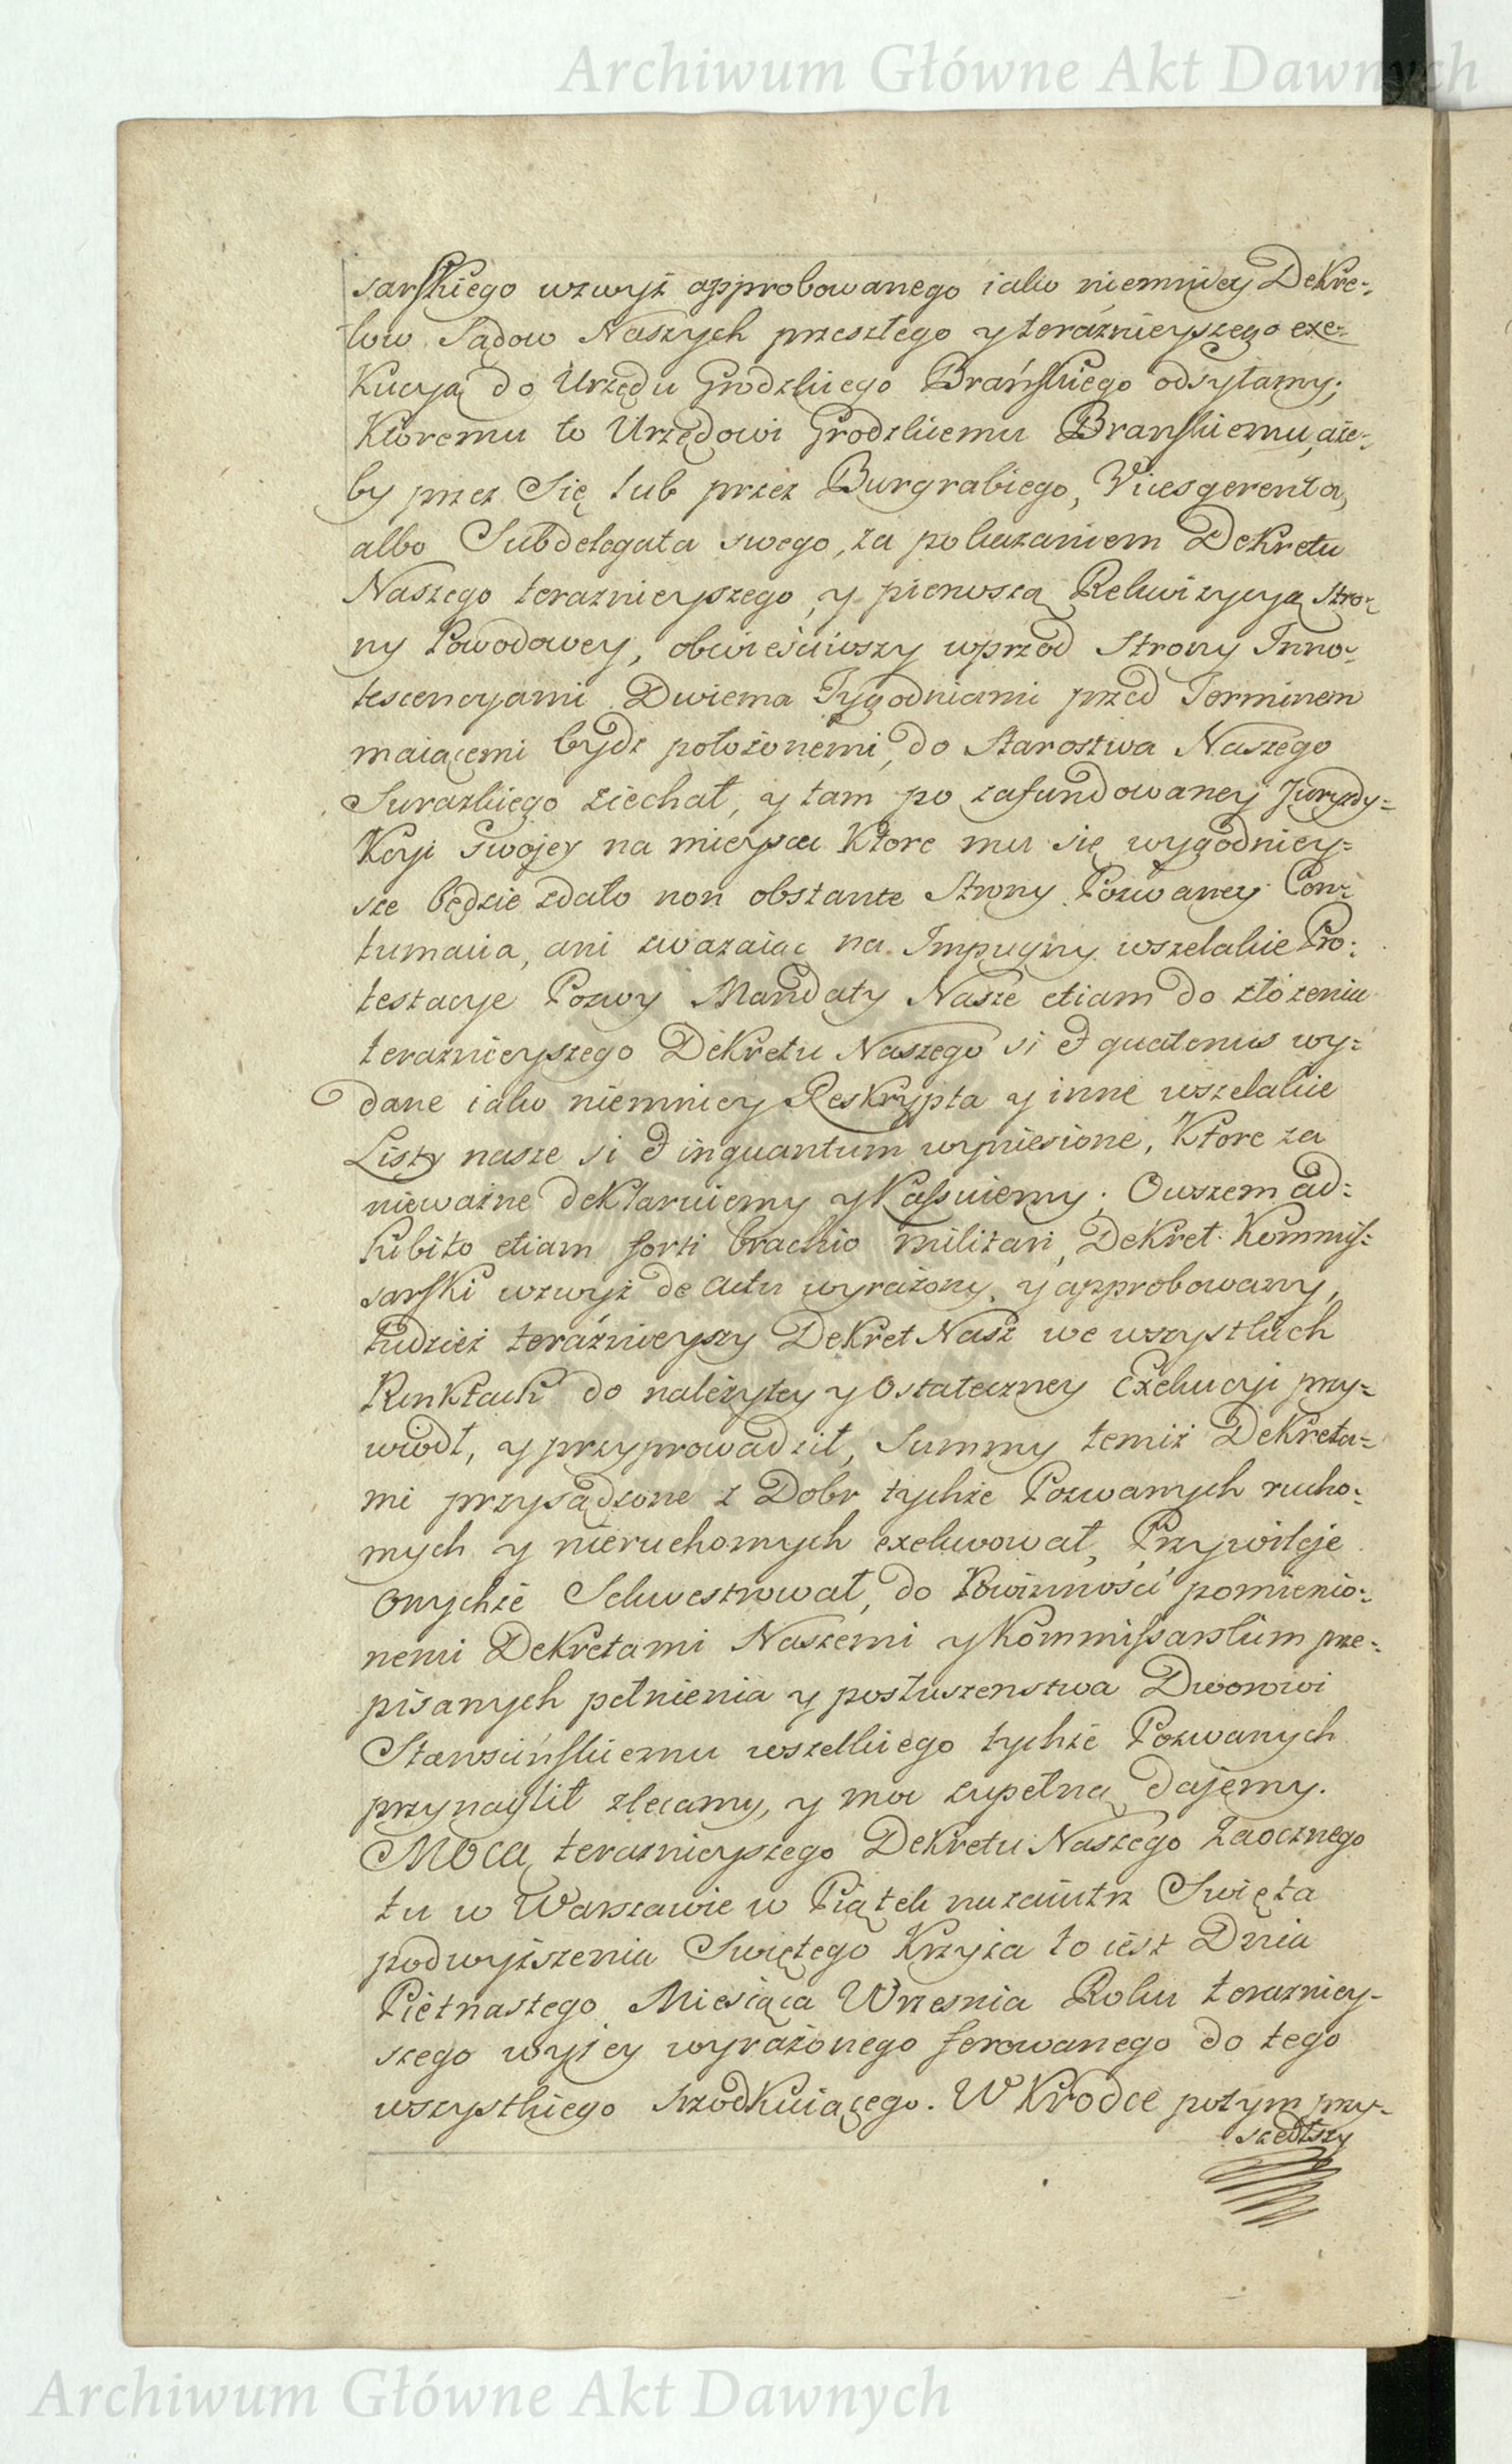 Archiwum Główne Akt Dawnych
sarskiego wzwyż approbowanego iako niemniey Dekre=
tow Sądow Naszych przeszłego y teráźnieyszego exe=
kucyą do Urzędu Grodzkiego Brańskiego odsyłamy;
Ktoremu to Urzędowi Grodzkiemu Branskiemu, aże=
by przez Się lub przez Burgrabiego, Vicesgerenta,
albo Subdelegata swego, za pokazaniem Dekretu
Naszego teraznieyszego, y pierwszą Rekwizycyą Stro=
ny Powodowey, obwieściwszy wprzod Strony Inno=
tescencyami Dwiema Tygodniami przed Terminem
maiącemi bydz położonemi, do Starostwa Naszego
Surazkiego ziechał, y tam po zafundowaney Juryzdy=
kcyi swojey na mieyscu Ktore mu się wygodniey=
sze będzie zdało non obstante Strony Pozwaney Con=
tumacia, ani zwazaiąc na Impugny wszelakie Pro=
testacye Pozwy Mandaty Nasze etiam do złożeniu
teraznieyszego Dekretu Naszego si & quatenus wy=
dane iako niemniey Reskrypta y inne wszelakie
Listy nasze si & inquantum wyniesione, Ktore za
nieważne deklaruiemy y Kassuiemy. Owszem ad=
hibito etiam forti brachio militari, Dekret Kommis=
sarski wzwyż de actu wyrażony, y approbowany,
tudzież teráźnieyszy Dekret Nasz we wszystkich
Punktach do należytey y Ostateczney Exekucyi przy=
wiodł, y przyprowadził, Summy temiż Dekreta=
mi przysądzone z Dobr tychże Pozwanych rucho=
mych y nieruchomych exekwował, Przywileje
onychże Sekwestrował, do Powinności pomienio=
nemi Dekretami Naszemi y Kommissarskim prze=
pisanych pełnienia y posłuszenstwa Dworowi
Stawscińskiemu wszelkiego tychże Pozwanych
przynaglił zlecamy, y moc zupełną dajemy.
Mocą teraznieyszego Dekretu Naszego Zaocznego
tu w Warszawie w Piątek nazaiutrz Swięta
podwyższenia Swiętego Krzyża to iest Dnia
Piętnastego Miesiąca Wrzesnia Roku terazniey=
szego wyżey wyrażonego ferowanego do tego
wszystkiego srzodkuiącego. W Krodce potym przy=
szedłszy
Archiwum Główne Akt Dawnych